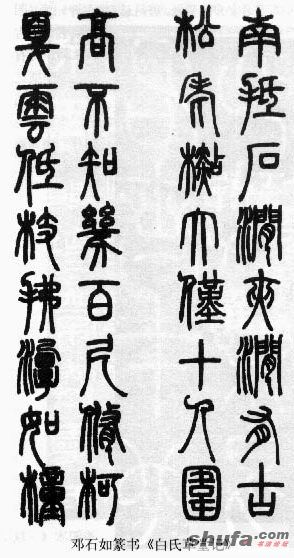 南抵石澗夾澗有古
松老檆大僅十人圍
高不知幾百尺脩柯
戛雲低枝拂潭如橦
邓石如篆书《白氏草堂记》
shufa.com